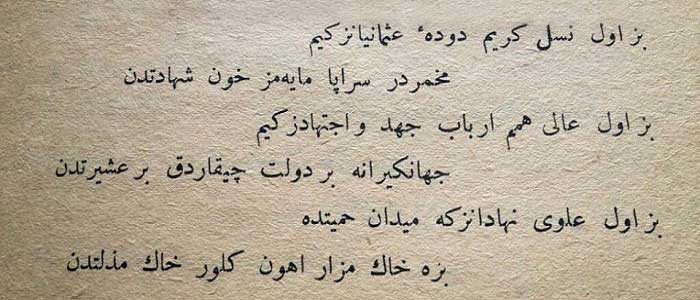 بز اول نسل كريم دودهٔ عثمانيانزكيم
مخمردر سراپا مايه‌مز خون شهادتدن
بز اول عالی همم ارباب جهد و اجتهادزكيم
جهانكيرانه بر دولت چيقاردق بر عشيرتدن
بز اول علوی نهادانزكه ميدان حميتده
بزه خاك مزار اهون كلور خاك مذلتدن